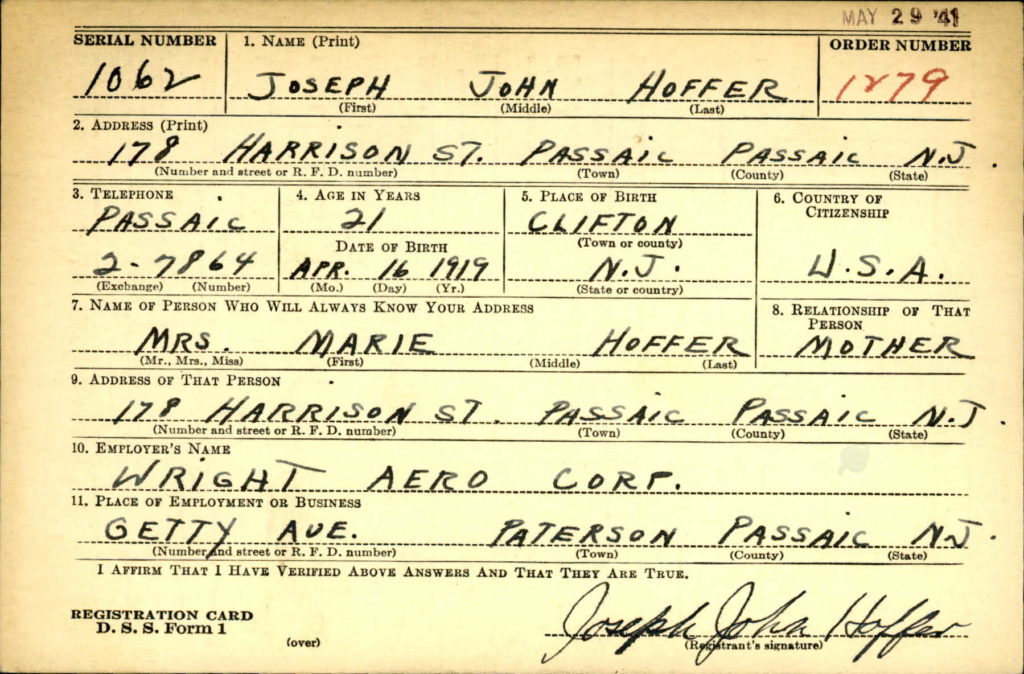 MAY 29 '41
SERIAL NUMBER 1. NAME (Print) ORDER NUMBER
1062 JOSEPH JOHN HOFFER 1279
(First) (Middle) (Last)
2. ADDRESS (Print)
178 HARRISON ST. PASSAIC PASSAIC N.J.
(Number and street or R. F. D. number) (Town) (County) (State)
3. TELEPHONE 4. AGE IN YEARS 5. PLACE OF BIRTH 6. COUNTRY OF CITIZENSHIP
PASSAIC 21 CLIFTON
DATE OF BIRTH (Town or county)
2-7864 APR. 16 1919 N.J. U.S.A.
(Exchange) (Number) (Mo.) (Day) (Yr.) (State or country)
7. NAME OF PERSON WHO WILL ALWAYS KNOW YOUR ADDRESS 8. RELATIONSHIP OF THAT PERSON
MRS. MARIE HOFFER MOTHER
(Mr., Mrs., Miss) (First) (Middle) (Last)
9. ADDRESS OF THAT PERSON
178 HARRISON ST. PASSAIC PASSAIC N.J.
(Number and street or R. F. D. number) (Town) (County) (State)
10. EMPLOYER'S NAME
WRIGHT AERO CORP.
11. PLACE OF EMPLOYMENT OR BUSINESS
GETTY AVE. PATERSON PASSAIC N.J.
(Number and street or R. F. D. number) (Town) (County) (State)
I AFFIRM THAT I HAVE VERIFIED ABOVE ANSWERS AND THAT THEY ARE TRUE.
REGISTRATION CARD
D. S. S. Form 1
(over)
Joseph John Hoffer
(Registrant's signature)